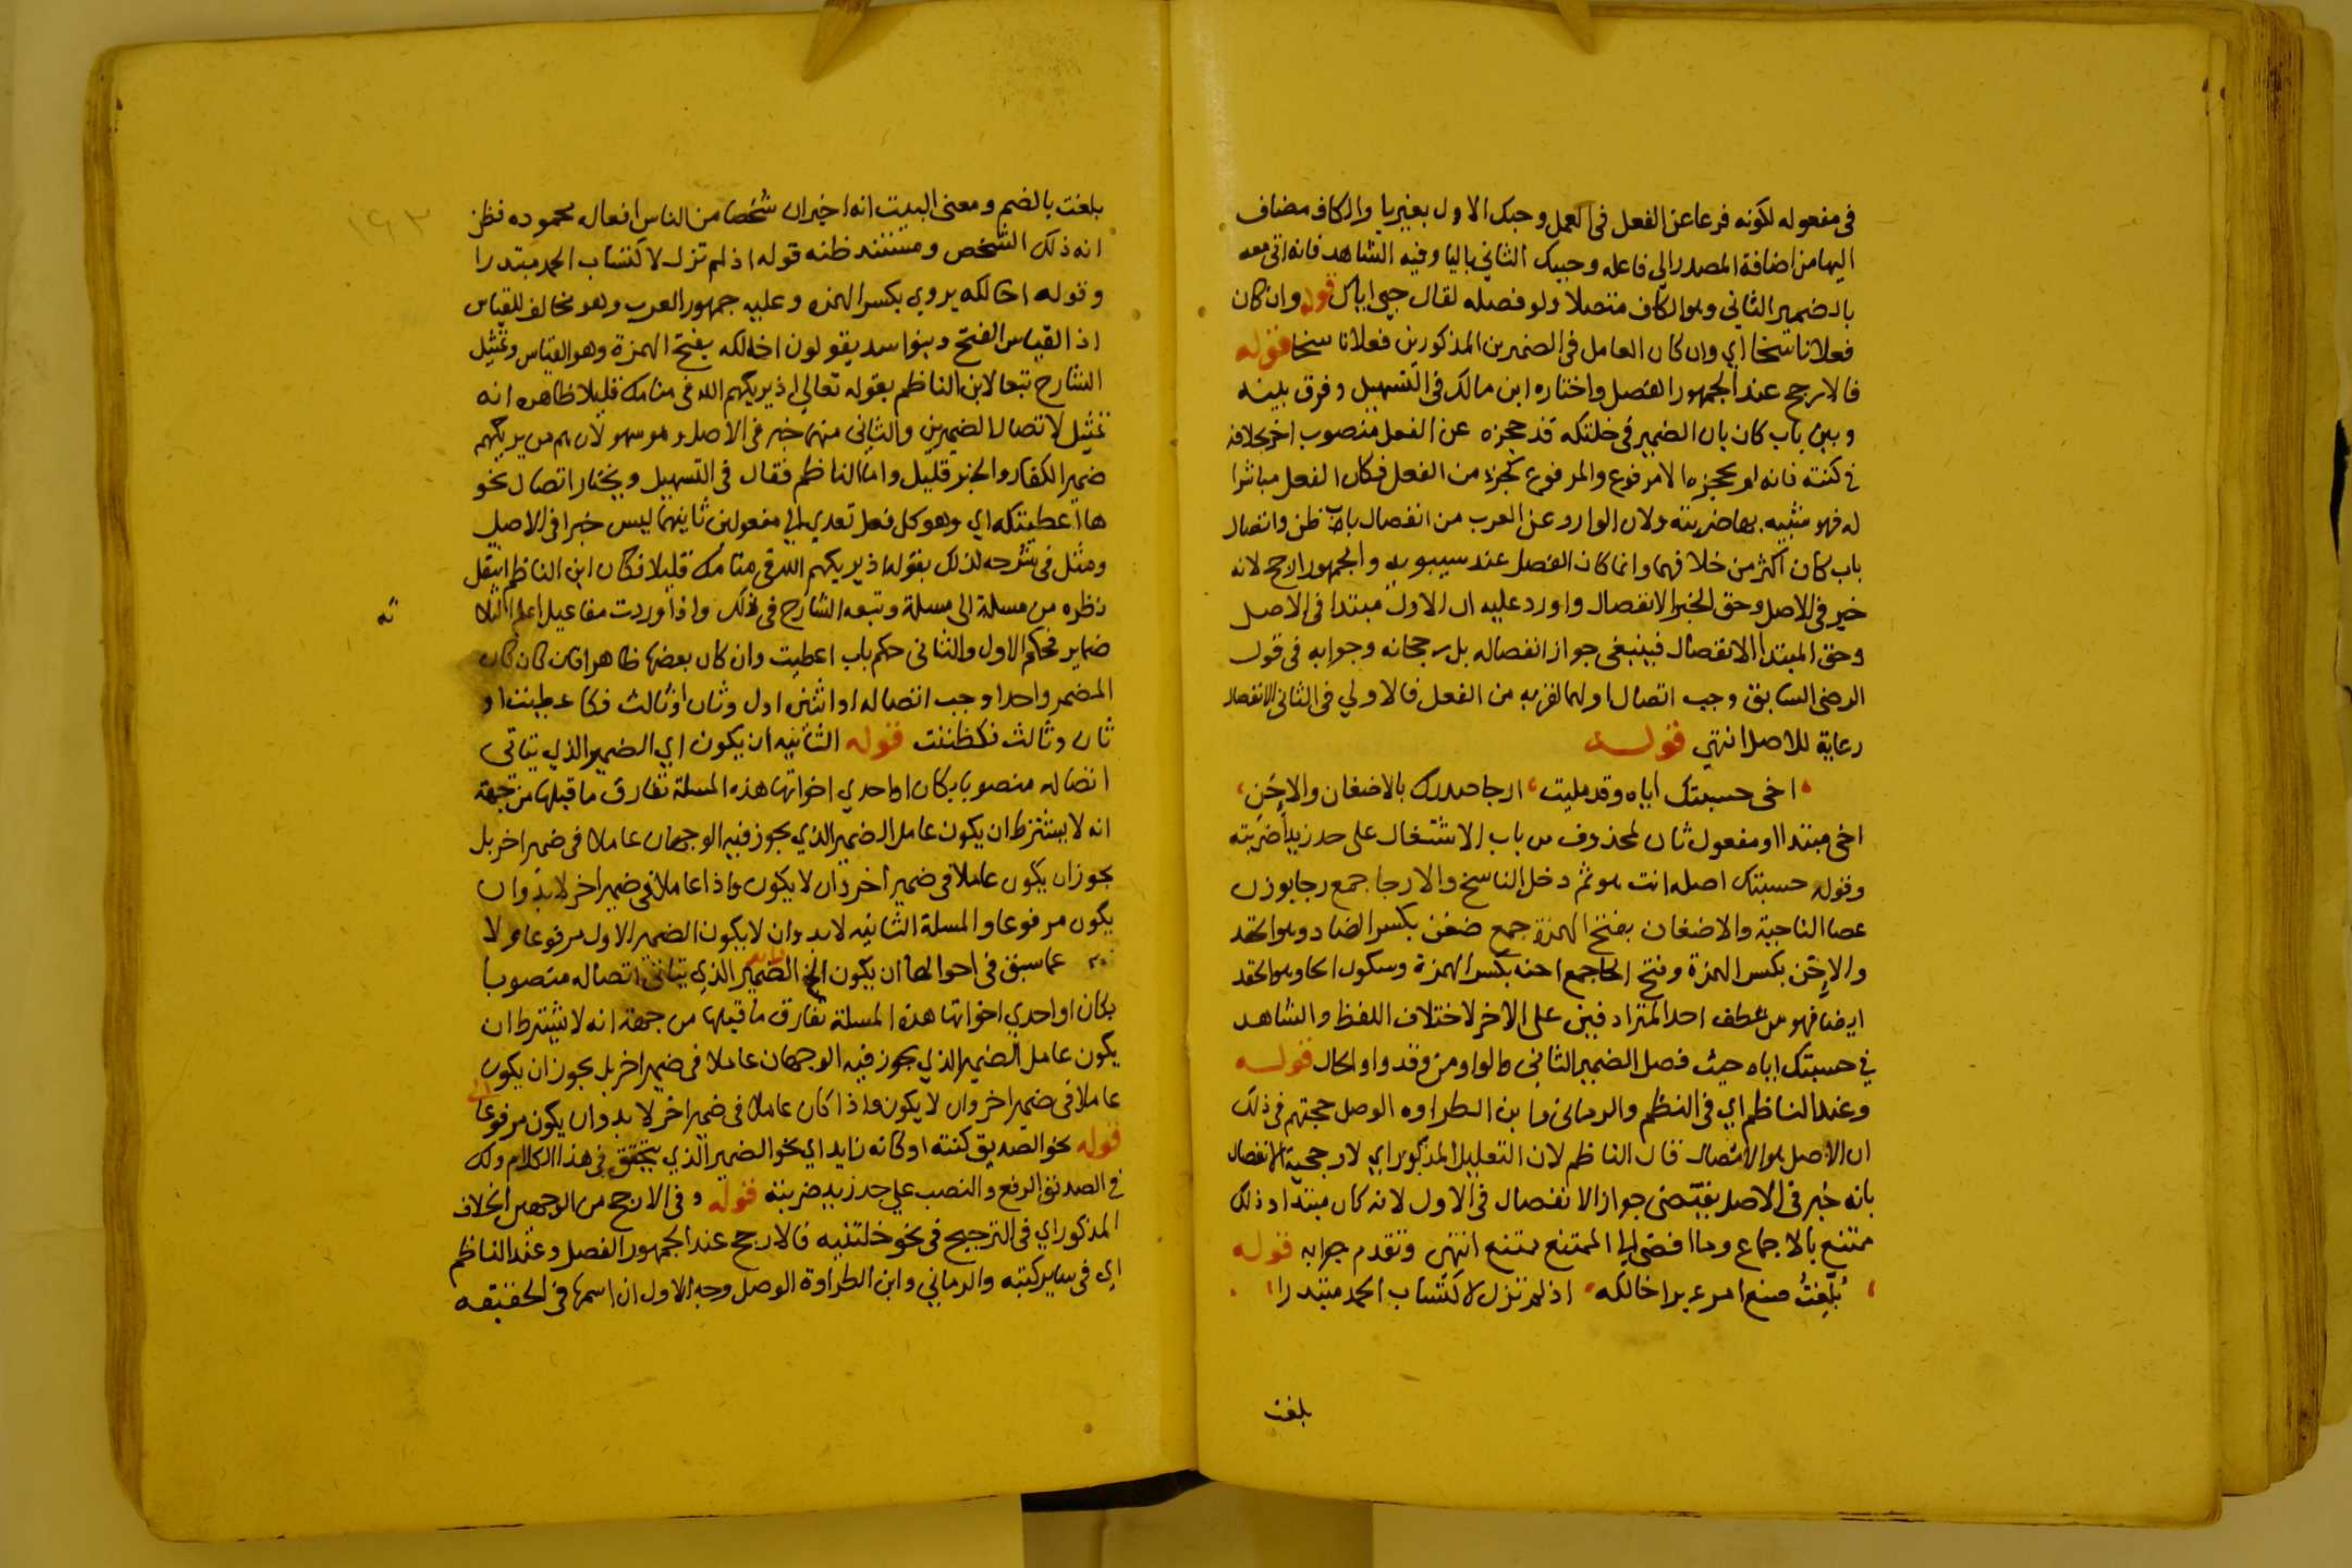 في مفعوله لكونه فرعا عن الفعل في العمل وحبك الاول بغير يا والكاف مضاف
اليها من اضافة المصدر الي فاعله وحبيك الثاني باليا وفيه الشاهد فانه اتي معه
بالضمير الثاني وهو الكاف متصلا ولو فصله لقال حبي اياك قوله وان كان
فعلا ناسخا اي وان كان العامل في الضميرين المذكورين فعلا ناسخا قوله
فالارجح عند الجمهور الفصل واختاره ابن مالك في التسهيل وفرق بينه
وبين باب كان بان الضمير في خلتكه قد حجزه عن الفعل منصوب اخر بخلافه
في كنته فانه لم يحجزه الا مرفوع والمرفوع كجزء من الفعل فكان الفعل مباشرا
له فهو شبيه بها ضربته ولان الوارد عن العرب من انفصال باب ظن واتصال
باب كان اكثر من خلافهما وانما كان الفصل عند سيبويه والجمهور ارجح لانه
خبر في الاصل وحق الخبر الانفصال واورد عليه ان الاول مبتدا في الاصل
وحق المبتدا الانفصال فينبغي جواز انفصاله بل رجحانه وجوابه في قول
الرضي السابق وجب اتصال اولهما لقربه من الفعل فالاولي في الثاني الانفصال
رعاية للاصل انتهي قوله
اخي حسبتك اياه وقد مليت ارجا صدرك بالاضغان والاحن
اخي مبتدا او مفعول ثان لمحذوف من باب الاشتغال على حد زيدا ضربته
وقوله حسبتك اصله انت هو ثم دخل الناسخ والارجا جمع رجا بوزن
عصا الناحية والاضغان بفتح الهمزة جمع ضغن بكسر الضاد وهو الحقد
والاحن بكسر الهمزة وفتح الحا جمع احنه بكسر الهمزة وسكون الحا وهو الحقد
ايضا فهو من عطف احد المترادفين على الاخر لاختلاف اللفظ والشاهد
في حسبتك اياه حيث فصل الضمير الثاني والواو من وقد واو الحال قوله
وعند الناظم اي في النظم والرماني وابن الطراوه الوصل حجتهم في ذلك
ان الاصل هو الاتصال قال الناظم لان التعليل المذكور اي لارجحية الانفصال
بانه خبر في الاصل يقتضي جواز الانفصال في الاول لانه كان مبتدا وذلك
ممتنع بالاجماع وما افضي الي الممتنع ممتنع انتهي وتقدم جوابه قوله
بُلِّغتُ صنع امرء براخالكه اذ لم تزل لاكتساب الحمد مبتدرا
بلغت
١٩٣
بلغت بالضم ومعنى البيت انه اخبر ان شخصا من الناس افعاله محموده فظن
انه ذلك الشخص ومستند ظنه قوله اذ لم تزل لاكتساب الحمد مبتدرا
وقوله اخالكه يروي بكسر الهمزه وعليه جمهور العرب وهو مخالف للقياس
اذ القياس الفتح وبنوا اسد يقولون اخالكه بفتح الهمزة وهو القياس وتمثيل
الشارح تبعا لابن الناظم بقوله تعالي اذ يريكهم الله في منامك قليلا ظاهره انه
تمثيل لاتصال الضميرين والثاني منهما خبر في الاصل وهو سهو لان هم من يريكهم
ضمير الكفار والخبر قليل واما الناظم فقال في التسهيل ويختار اتصال نحو
ها اعطيتكه اي وهو كل فعل تعدي الي مفعولين ثانيهما ليس خبرا في الاصل
ومثل في شرحه لذلك بقوله اذ يريكهم الله في منامك قليلا فكان ابن الناظم انتقل
نظره من مسلة الى مسلة وتبعه الشارح في ذلك واذا وردت مفاعيل اعلم الثلاثة
ضماير فحكم الاول والثاني حكم باب اعطيت وان كان بعضها ظاهرا فان كان
المضمر واحدا وجب اتصاله او اثنين اول وثان او ثالث فكاعطيت او
ثان وثالث فكظننت قوله الثانيه ان يكون اي الضمير الذي يتاتى
اتصاله منصوبا بكان او احدي اخواتها هذه المسلة تفارق ما قبلها من جهة
انه لا يشترط ان يكون عامل الضمير الذي يجوز فيه الوجهان عاملا في ضمير اخر بل
يجوز ان يكون عاملا في ضمير اخر وان لا يكون واذا عاملا في ضمير اخر لا بد وان
يكون مرفوعا والمسلة الثانيه لا بد وان لا يكون الضمير الاول مرفوعا
عما سبق في احوالها ان يكون الخ الضمير الذي يتاتى اتصاله منصوبا
بكان او احدي اخواتها هذه المسلة تفارق ما قبلها من جهة انه لا يشترط ان
يكون عامل الضمير الذي يجوز فيه الوجهان عاملا في ضمير اخر بل يجوز ان يكون
عاملا في ضمير اخر وان لا يكون واذا كان عاملا في ضمير اخر لا بد وان يكون مرفوعا
قوله نحو الصديق كنته او كانه زيد اي نحو الضمير الذي يتحقق في هذا الكلام ولك
في الصديق الرفع والنصب علي حد زيد ضربته قوله وفي الارجح من الوجهين الخلاف
المذكور اي في الترجيح في نحو خلتنيه فالارجح عند الجمهور الفصل وعند الناظم
اي في ساير كتبه والرماني وابن الطراوة الوصل وجه الاول ان اسمها في الحقيقه